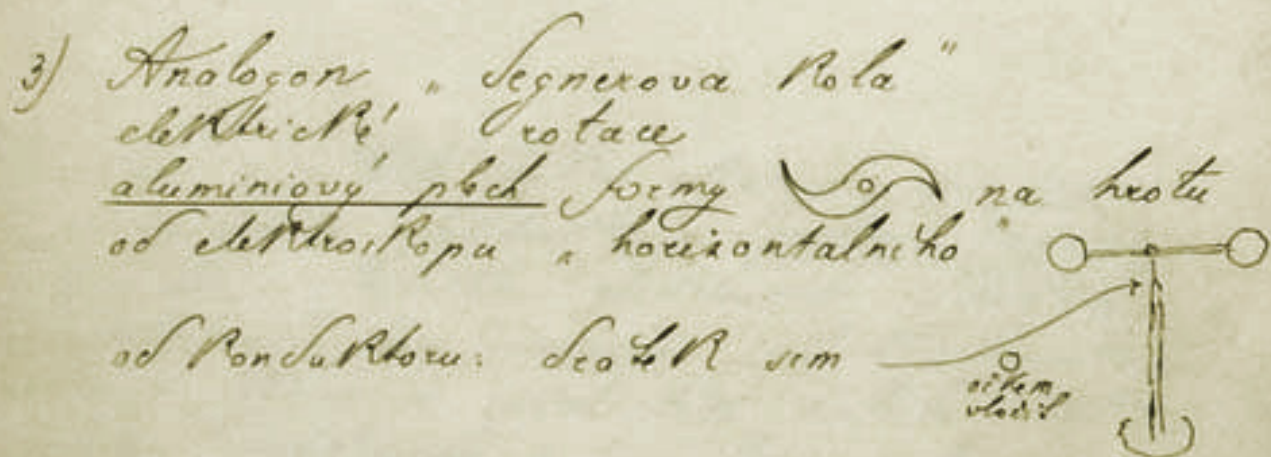 3) Analogon „Segnerova kola"
elektrické rotace
aluminiový plech formy na hrotu
od elektroskopu „horizontalního"
od konduktoru: drátek sem
očkem
vložit